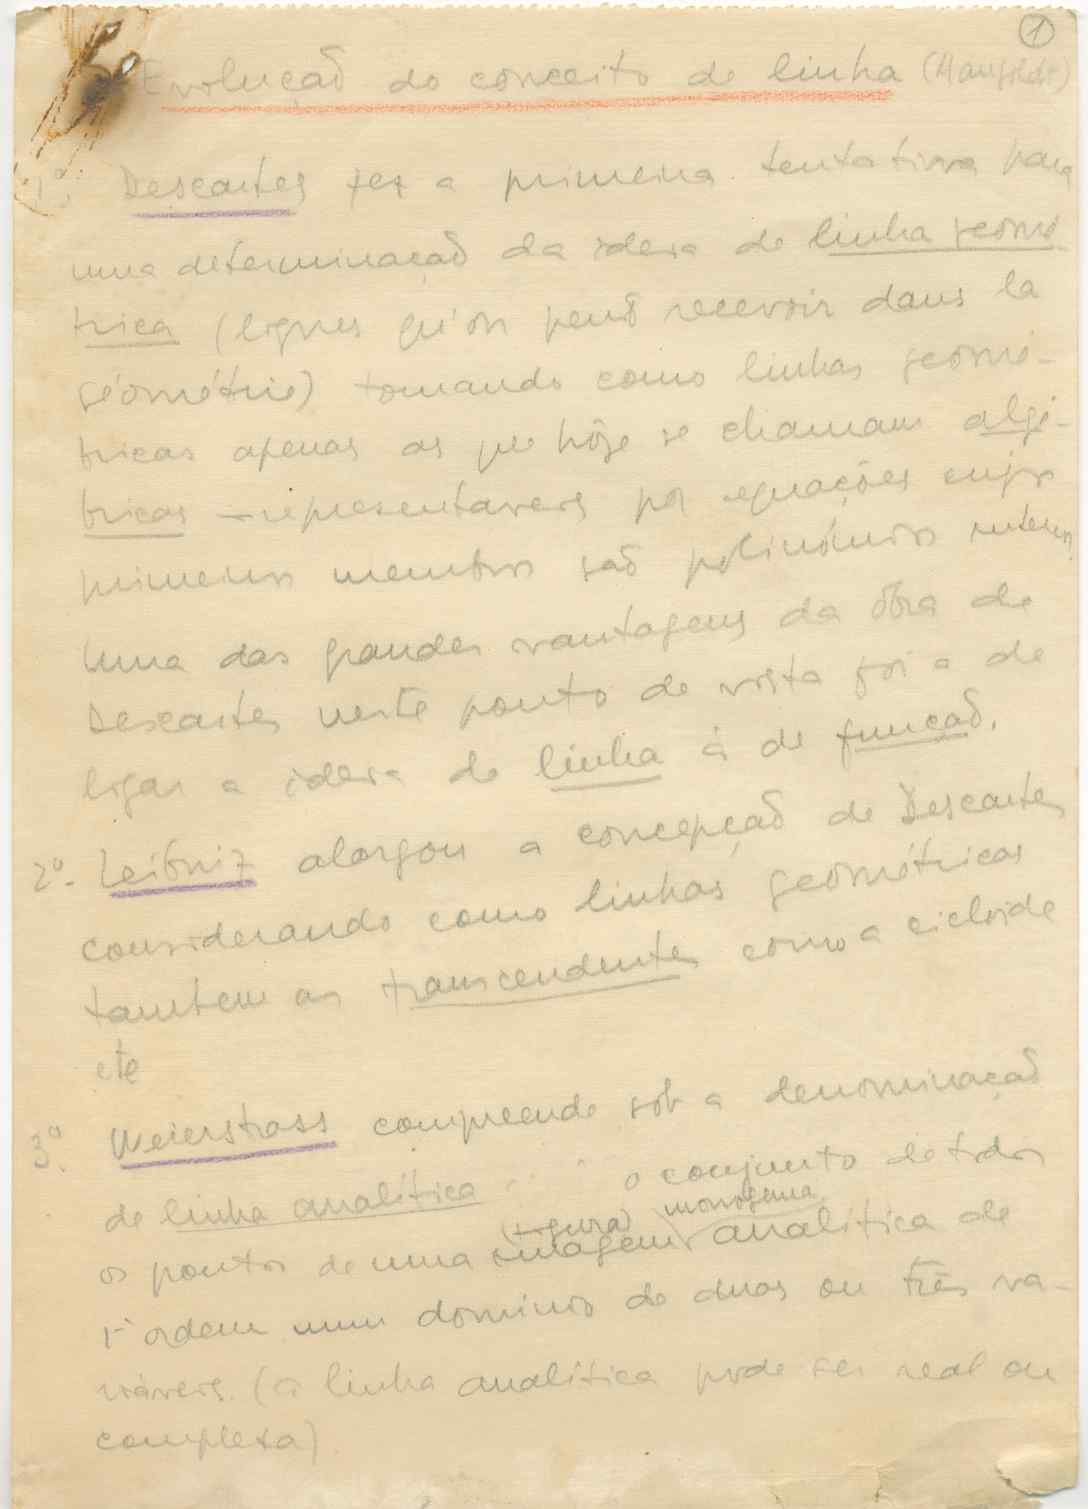 1
Evolução do conceito de linha (Mangoldt)
1º. Descartes fez a primeira tentativa para
uma determinação da ideia de linha geomé
trica (lignes qu'on peut recevoir dans la
géométrie) tomando como linhas geomé-
tricas apenas as que hôje se chamam algé-
bricas - representaveis por equações cujos
primeiros membros são polinómios inteiros.
Uma das grandes vantagens da óbra de
Descartes neste ponto de vista foi a de
ligar a ideia de linha á de função.
2º. Leibniz alargou a concepção de Descartes
considerando como linhas geométricas
tambem as transcendentes como a cicloide
etc
3º. Weierstrass compreende sob a denominação
de linha analítica o conjunto de todos
(figura) monogenea
os pontos de uma imagem analítica de
1ª ordem num dominio de duas ou três va-
riáveis. (a linha analítica pode ser real ou
complexa)